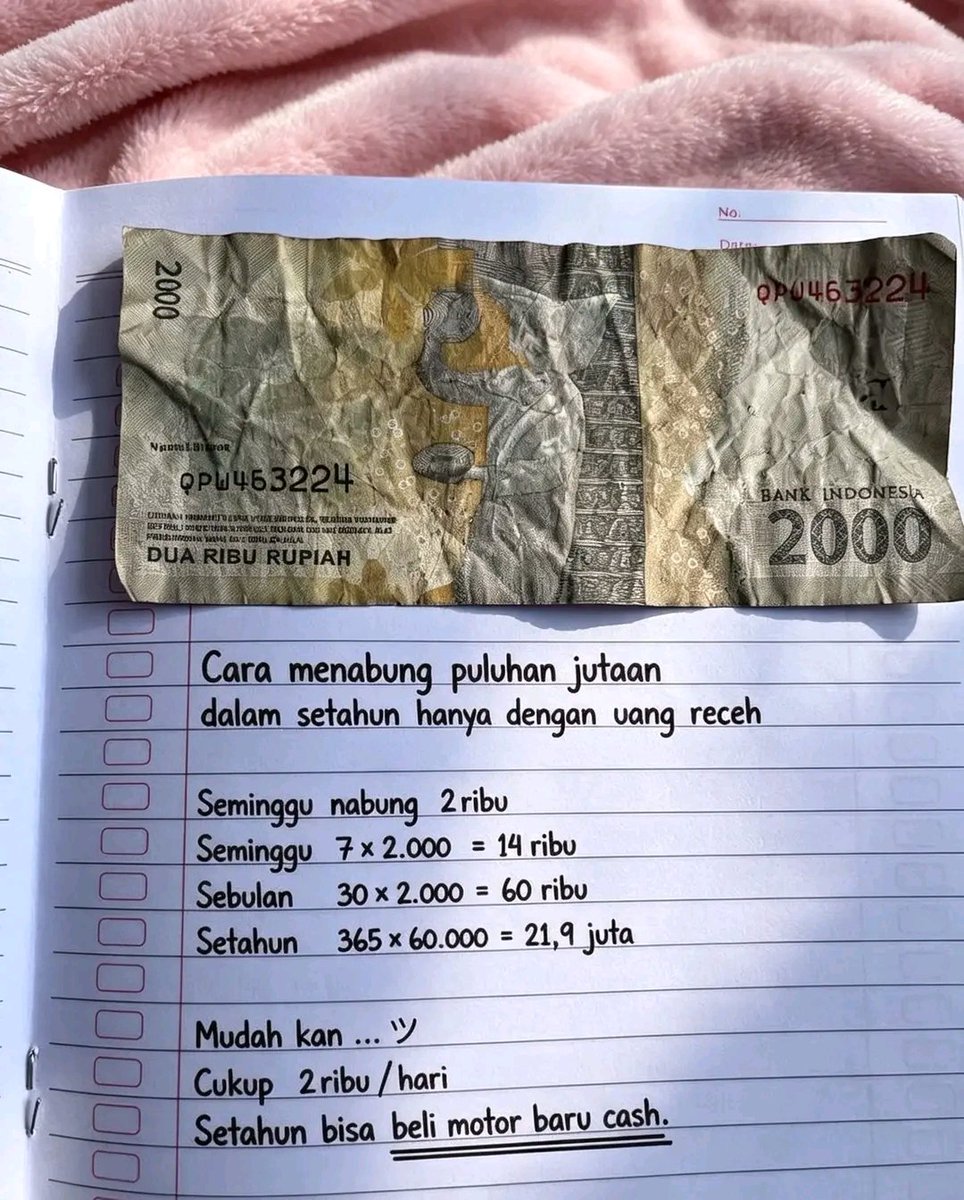 No.
2000
QPW463224
QPW463224
DUA RIBU RUPIAH
BANK INDONESIA
2000
Cara menabung puluhan jutaan
dalam setahun hanya dengan uang receh
Seminggu nabung 2 ribu
Seminggu 7 x 2.000 = 14 ribu
Sebulan 30 x 2.000 = 60 ribu
Setahun 365 x 60.000 = 21,9 juta
Mudah kan ... ツ
Cukup 2 ribu / hari
Setahun bisa beli motor baru cash.